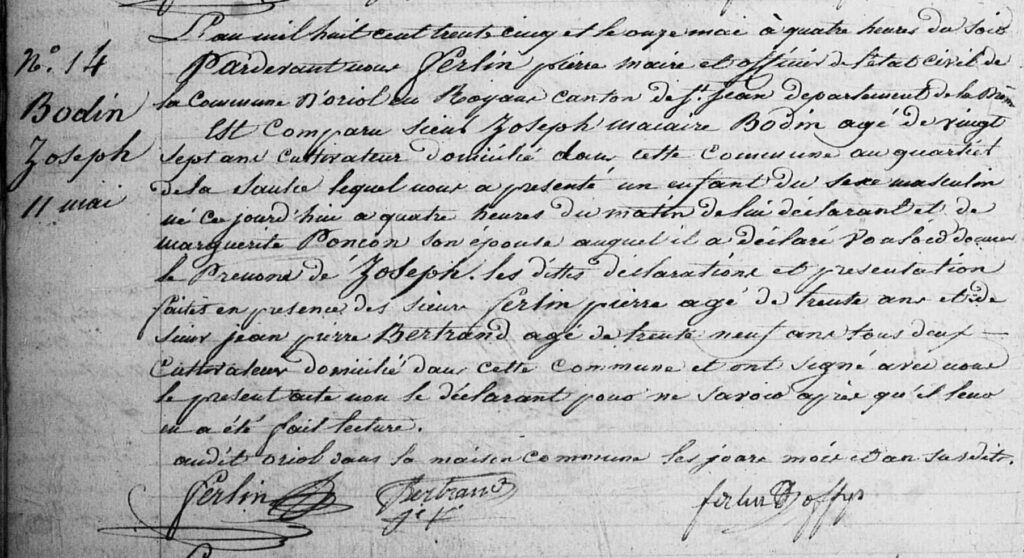 N°. 14
Bodin
Joseph
11 mai
L'an mil huit cent trente cinq et le onze mai à quatre heures du soir
Pardevant nous Ferlin pierre maire et officier de l'état civil de
la Commune D'oriol en Royans canton de St. Jean departement de la Drôme
Est Comparu sieur Joseph macaire Bodin agé de vingt
sept ans cultivateur domicilié dans cette Commune au quartier
de la lequel nous a présenté un enfant du sexe masculin
né ce jourd'hui a quatre heures du matin de lui déclarant et de
marguerite Poncon son épouse auquel il a déclaré vouloir donner
le Prenons de Joseph. les dittes déclarations et presentation
faites en presence des sieurs ferlin pierre agé de trente ans et de
sieur jean pierre Bertrand agé de trente neuf ans tous deux
Cultivateurs domicilié dans cette Commune et ont signé avec nous
le present acte non le déclarant pour ne savoir après qu'il leur
en a été fait lecture.
audit oriol dans la maison commune les jours mois et an susdits.
ferlin Bertrand ferlin